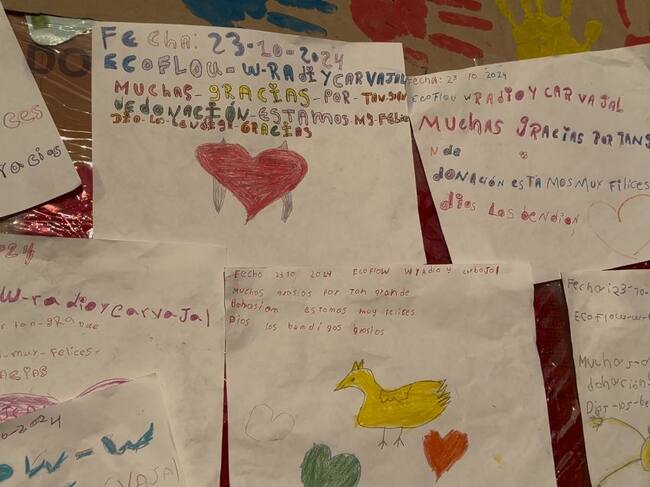 Fecha: 23-10-2024
ECOFLOU-W-RADiYCARVAJAL
MUCHAS-gRACIAS-POR-TAN-gRAN
DE DONACIÓN-ESTAMOS-MY-FELiC
DIO-LOS-BENDIGA-GRACIAS
Fecha: 23 10 2024
ECOFLOW WRADIO Y CARVAJAL
MUCHAS gRACIAS POR TANg
N de
DONACIÓN esTAMOS MUY FILICES
diOS LOS beNDiON
ces
racias
24
W-radioycarvajal
r tan-grande
-muy-felices-
Fecho 23 10, 2024 ECOFLOW W RAdio y carbajal
Muchos grasios por Tan grande
donasion estamos muy felises
Dios los bendigos grasios
Fecha: 23-10-
ECOFlow-w-
Muchas-
donación
Dios-los-be
-2024
OW-W
VAJAL
DO